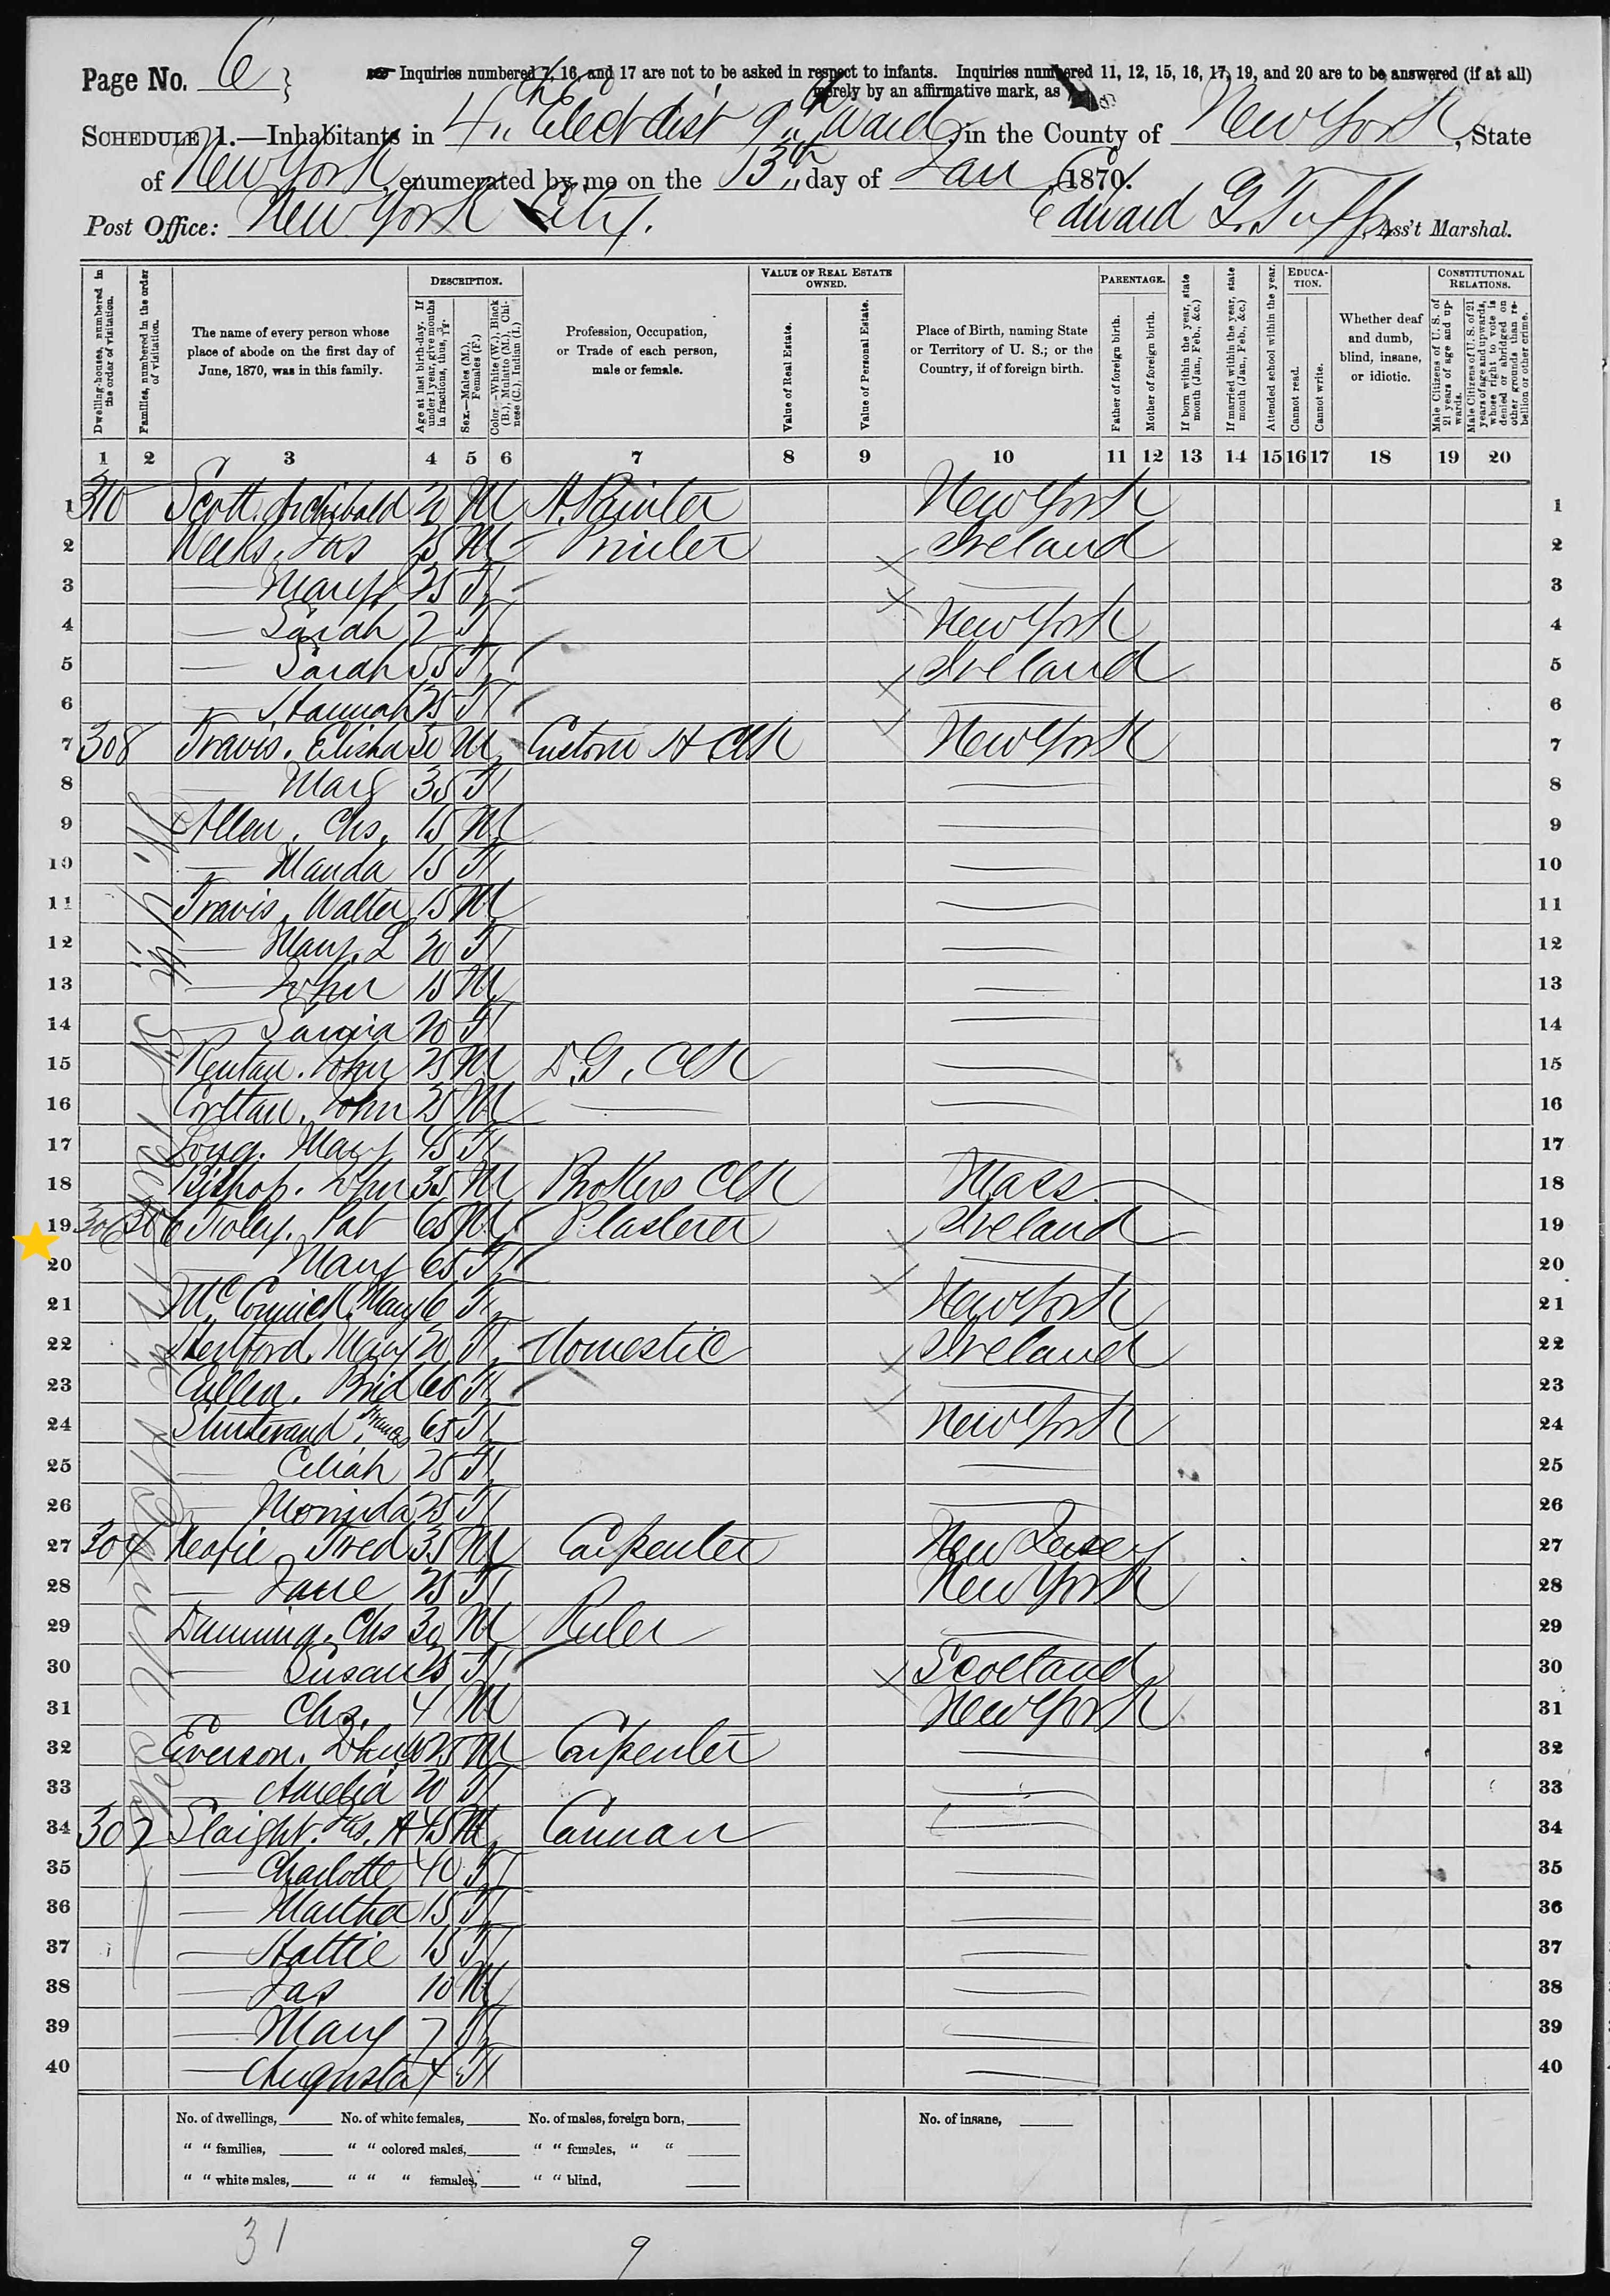 Page No. 6
Inquiries numbered 7, 16, and 17 are not to be asked in respect to infants. Inquiries numbered 11, 12, 15, 16, 17, 19, and 20 are to be answered (if at all)
merely by an affirmative mark, as
SCHEDULE 1.—Inhabitants in 4th Elect dist 9th Ward, in the County of New York, State
of New York, enumerated by me on the 13th day of Jan, 1870.
Post Office: New York City. Edward G. Ass't Marshal.
DESCRIPTION. VALUE OF REAL ESTATE OWNED. PARENTAGE. EDUCATION. CONSTITUTIONAL RELATIONS.
Dwelling-houses, numbered in the order of visitation.
Families, numbered in the order of visitation.
The name of every person whose place of abode on the first day of June, 1870, was in this family.
Age at last birth-day. If under 1 year, give months in fractions, thus, 3/12.
Sex.—Males (M.), Females (F.)
Color.—White (W.), Black (B.), Mulatto (M.), Chinese (C.), Indian (I.)
Profession, Occupation, or Trade of each person, male or female.
Value of Real Estate.
Value of Personal Estate.
Place of Birth, naming State or Territory of U. S.; or the Country, if of foreign birth.
Father of foreign birth.
Mother of foreign birth.
If born within the year, state month (Jan., Feb., &c.)
If married within the year, state month (Jan., Feb., &c.)
Attended school within the year.
Cannot read.
Cannot write.
Whether deaf and dumb, blind, insane, or idiotic.
Male Citizens of U. S. of 21 years of age and upwards.
Male Citizens of U. S. of 21 years of age and upwards, whose right to vote is denied or abridged on other grounds than rebellion or other crime.
1 2 3 4 5 6 7 8 9 10 11 12 13 14 15 16 17 18 19 20
1 310 Scott. Archibald 20 M H. Painter New York 1
2 Weeks. Jas 25 M Printer Ireland 2
3 — Mary 25 F — 3
4 — Sarah 2 F New York 4
5 — Sarah 55 F Ireland 5
6 — Hannah 25 F — 6
7 308 Travis. Elisha 30 M Custom H Clk New York 7
8 — Mary 35 F — 8
9 Allen. Chs. 15 M — 9
10 — Manda 15 F — 10
11 Travis. Walter 15 M — 11
12 — Mary. L 20 F — 12
13 — John 18 M — 13
14 — 20 F — 14
15 John 25 M D. G. Clk — 15
16 John 25 M — — 16
17 Long. Mary 45 F 17
18 Bishop. John 35 M Brokers Clk Mass 18
19 306 306 Pat 65 M Plasterer Ireland 19
20 — Mary 65 F — 20
21 McCormick. Mary 6 F New York 21
22 Mary 20 F Domestic Ireland 22
23 Cullen. Brid 60 F — 23
24 65 F New York 24
25 — Celiah 25 F — 25
26 — 25 F — 26
27 304 Fred 35 M Carpenter New Jersey 27
28 — Jane 25 F New York 28
29 Chs 30 M Ruler — 29
30 — Susan 25 F Scotland 30
31 — Chs. 4 M New York 31
32 Everson. John 25 M Carpenter — 32
33 — Amelia 20 F — 33
34 302 Slaight. Jas. H 45 M Carman — 34
35 — Charlotte 40 F — 35
36 — Martha 15 F — 36
37 — Hattie 13 F — 37
38 — Jas 10 M — 38
39 — Mary 7 F — 39
40 — Augusta 4 F — 40
No. of dwellings, No. of white females, No. of males, foreign born, No. of insane,
" " families, " " colored males, " " females, " "
" " white males, " " " females, " " blind,
31
9